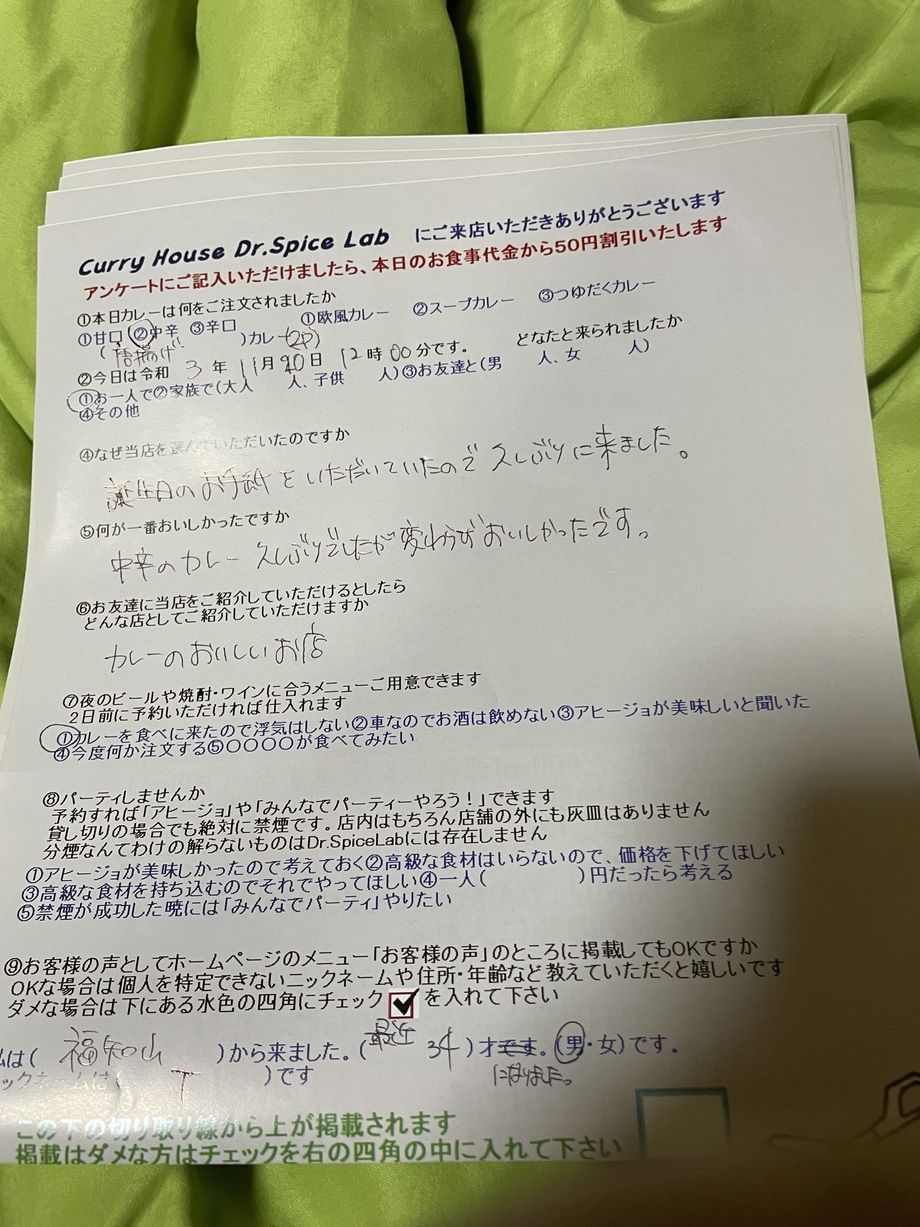 Curry House Dr.Spice Lab にご来店いただきありがとうございます
アンケートにご記入いただけましたら、本日のお食事代金から50円割引いたします
①本日カレーは何をご注文されましたか
①甘口 ②中辛 ③辛口 ①欧風カレー ②スープカレー ③つゆだくカレー
(唐揚げ )カレー(2D)
②今日は令和 3 年 11月20日 12時00分です。 どなたと来られましたか
①お一人で②家族で(大人 人、子供 人)③お友達と(男 人、女 人)
④その他
④なぜ当店を選んでいただいたのですか
誕生日のお手紙をいただいていたので久しぶりに来ました。
⑤何が一番おいしかったですか
中辛のカレー 久しぶりでしたが変わらずおいしかったです。
⑥お友達に当店をご紹介していただけるとしたら
どんな店としてご紹介していただけますか
カレーのおいしいお店
⑦夜のビールや焼酎・ワインに合うメニューご用意できます
2日前に予約いただければ仕入れます
①カレーを食べに来たので浮気はしない②車なのでお酒は飲めない③アヒージョが美味しいと聞いた
④今度何か注文する⑤〇〇〇〇が食べてみたい
⑧パーティしませんか
予約すれば「アヒージョ」や「みんなでパーティーやろう！」できます
貸し切りの場合でも絶対に禁煙です。店内はもちろん店舗の外にも灰皿はありません
分煙なんてわけの解らないものはDr.SpiceLabには存在しません
①アヒージョが美味しかったので考えておく②高級な食材はいらないので、価格を下げてほしい
③高級な食材を持ち込むのでそれでやってほしい④一人( )円だったら考える
⑤禁煙が成功した暁には「みんなでパーティ」やりたい
⑨お客様の声としてホームページのメニュー「お客様の声」のところに掲載してもOKですか
OKな場合は個人を特定できないニックネームや住所・年齢など教えていただくと嬉しいです
ダメな場合は下にある水色の四角にチェック を入れて下さい
は( 福知山 )から来ました。(最近 34 )才です。(男・女)です。
になりました。
ックネームは( T )です
この下の切り取り線から上が掲載されます
掲載はダメな方はチェックを右の四角の中に入れて下さい